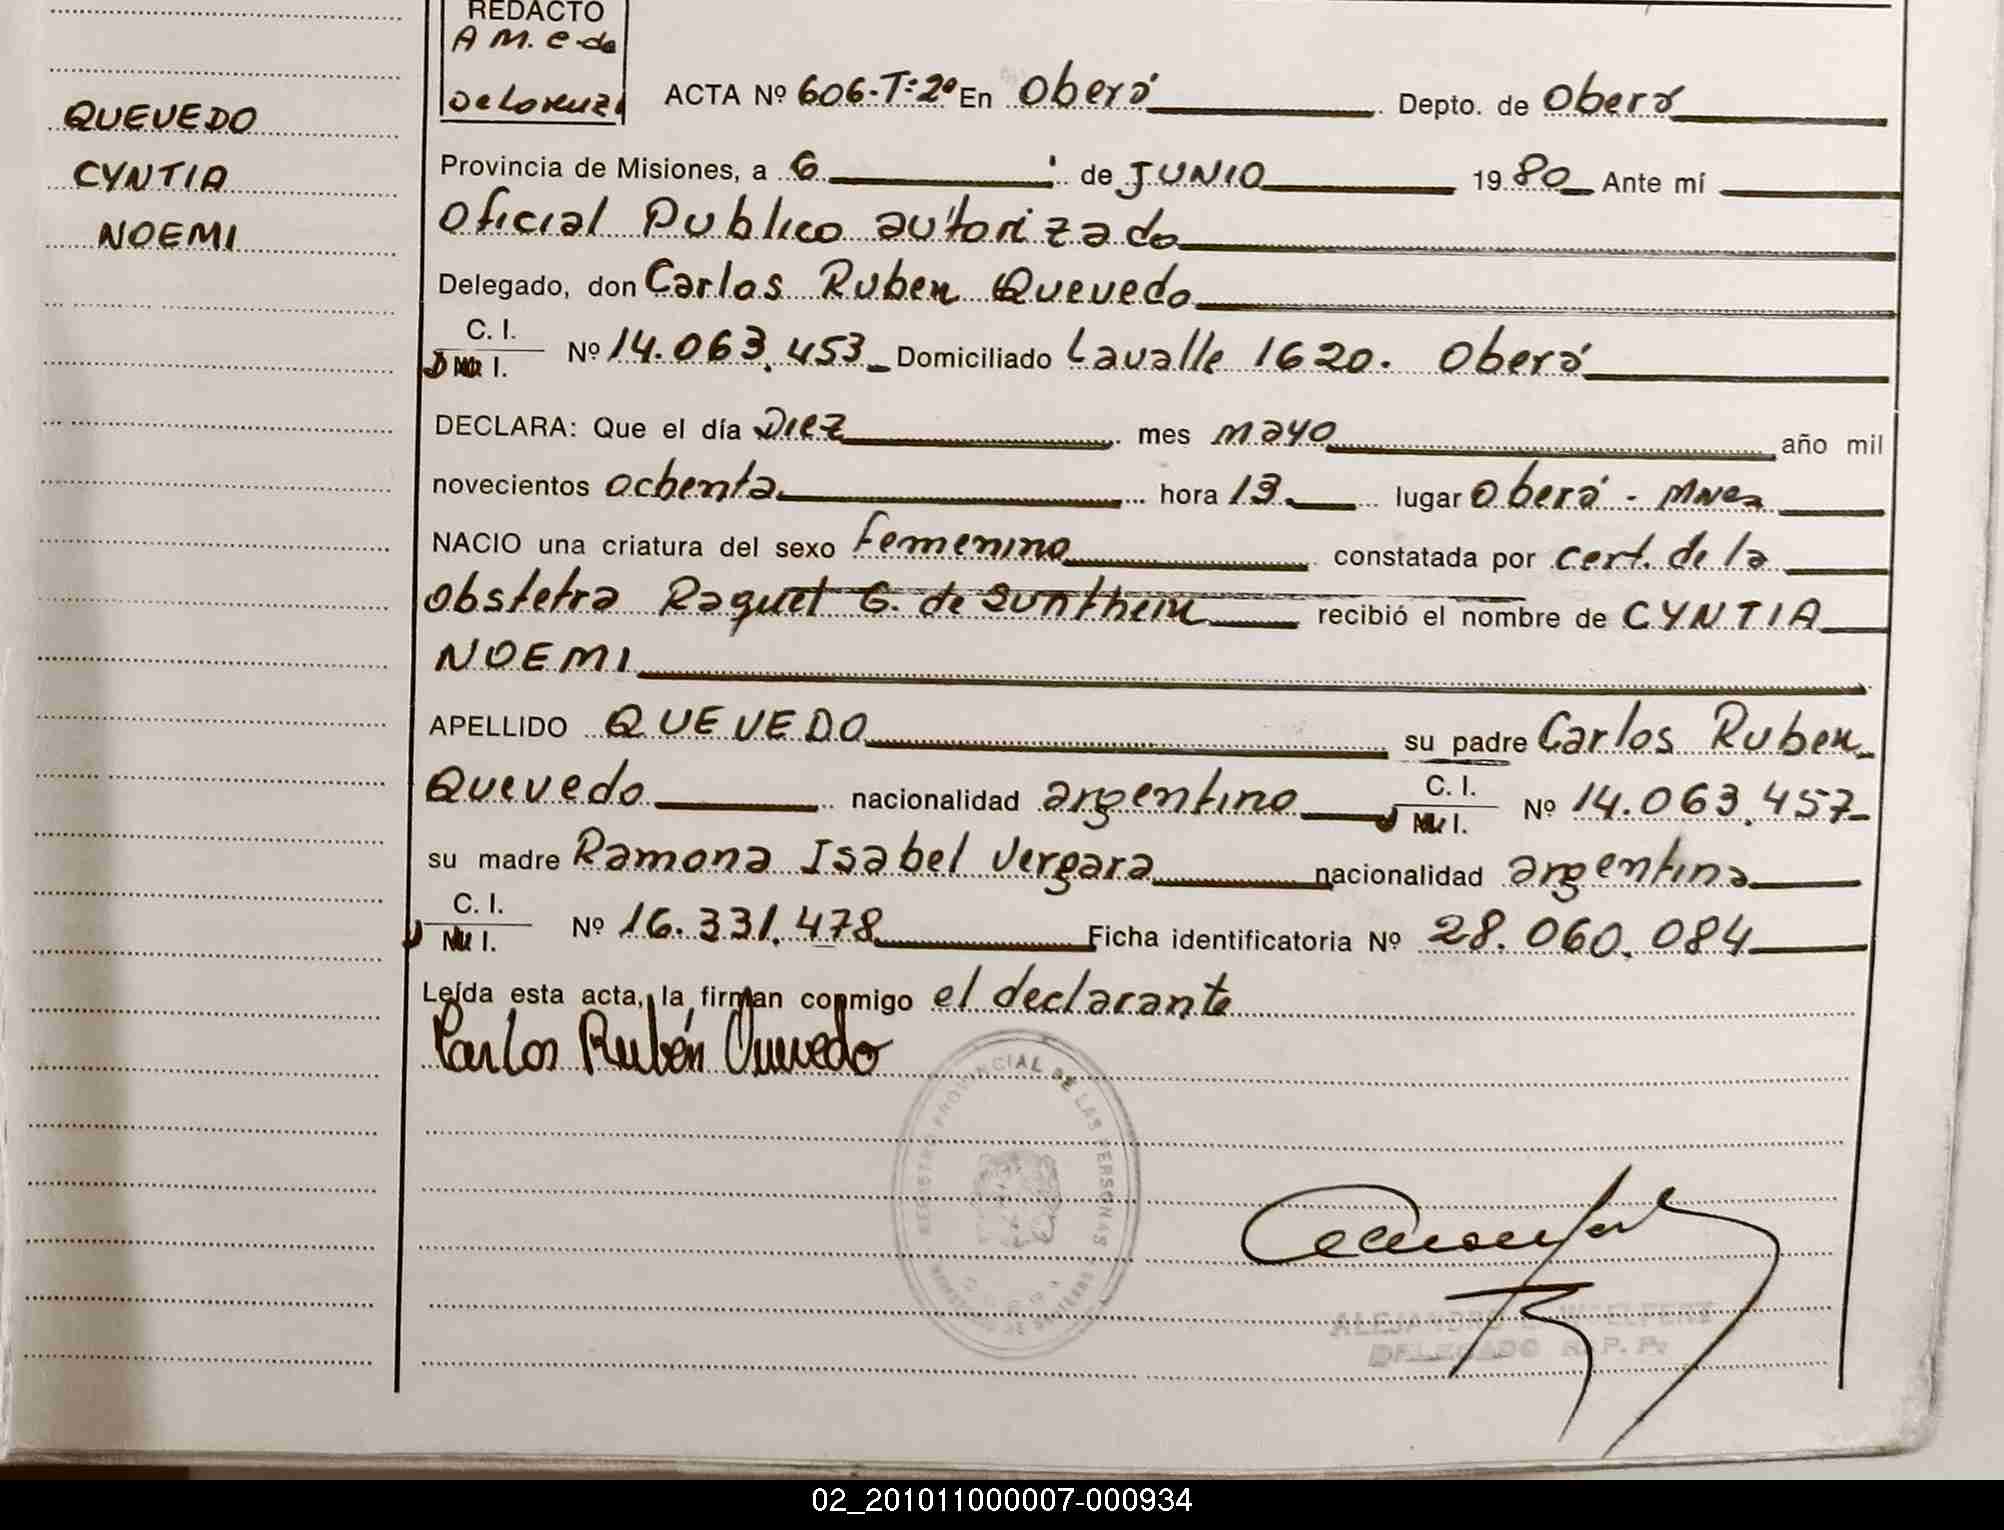 REDACTO
A M. C de
De Lorenzi
QUEVEDO
CYNTIA
NOEMI
ACTA Nº 606-Tº:2º En Oberá Depto. de Oberá
Provincia de Misiones, a 6 de JUNIO 1980 Ante mí
Oficial Publico autorizado
Delegado, don Carlos Ruben Quevedo
C. I.
D I. Nº 14.063.453 Domiciliado Lavalle 1620. Oberá
DECLARA: Que el día Diez mes mayo año mil
novecientos ochenta hora 13 lugar Oberá - Mnes
NACIO una criatura del sexo femenino constatada por cert. de la
obstetra Raquel G. de Sunthein recibió el nombre de CYNTIA
NOEMI
APELLIDO QUEVEDO su padre Carlos Ruben
Quevedo nacionalidad argentino C. I. Nº 14.063.457
I.
su madre Ramona Isabel Vergara nacionalidad argentina
C. I.
I. Nº 16.331.478 Ficha identificatoria Nº 28.060.084
Leída esta acta, la firman conmigo el declarante
Carlos Rubén Quevedo
REGISTRO PROVINCIAL DE LAS PERSONAS
ALEJANDRO
DELEGADO R. P. P.
02_201011000007-000934